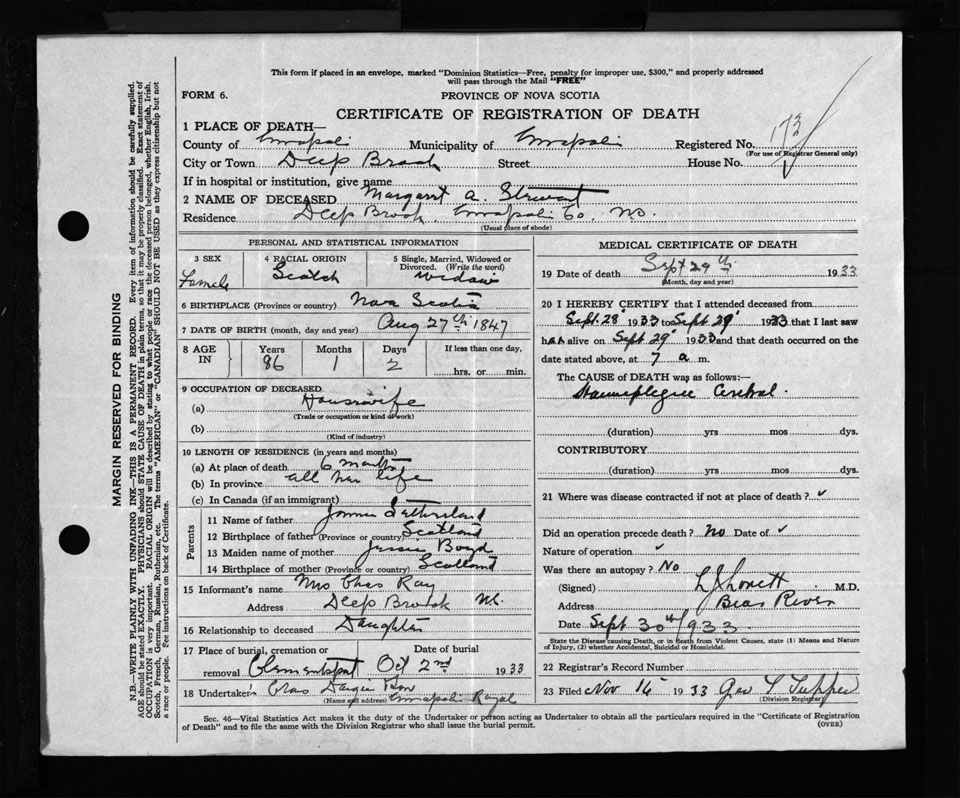 This form if placed in an envelope, marked "Dominion Statistics—Free, penalty for improper use, $300," and properly addressed
will pass through the Mail "FREE"
FORM 6.
PROVINCE OF NOVA SCOTIA
CERTIFICATE OF REGISTRATION OF DEATH
1 PLACE OF DEATH—
County of Municipality of Registered No. 173
(For use of Registrar General only)
City or Town Deep Brook Street House No.
If in hospital or institution, give name
2 NAME OF DECEASED Margaret A. Stewart
Residence Deep Brook, Co, N.S.
(Usual place of abode)
PERSONAL AND STATISTICAL INFORMATION
3 SEX Female
4 RACIAL ORIGIN Scotch
5 Single, Married, Widowed or Divorced. (Write the word) Widow
6 BIRTHPLACE (Province or country) Nova Scotia
7 DATE OF BIRTH (month, day and year) Aug 27th 1847
8 AGE IN Years 86 Months 1 Days 2 If less than one day, hrs. or min.
9 OCCUPATION OF DECEASED
(a) Housewife
(Trade or occupation or kind of work)
(b)
(Kind of industry)
10 LENGTH OF RESIDENCE (in years and months)
(a) At place of death 6 months
(b) In province all her life
(c) In Canada (if an immigrant)
Parents
11 Name of father Sutherland
12 Birthplace of father (Province or country) Scotland
13 Maiden name of mother Jessie Boyd
14 Birthplace of mother (Province or country) Scotland
15 Informant's name Mrs Chas Ray
Address Deep Brook N.S.
16 Relationship to deceased Daughter
17 Place of burial, cremation or removal Clementsport
Date of burial Oct 2nd 1933
18 Undertaker Chas Dargie & Son
(Name and address) Royal
MEDICAL CERTIFICATE OF DEATH
19 Date of death Sept 29th 1933
(Month, day and year)
20 I HEREBY CERTIFY that I attended deceased from
Sept 28 1933 to Sept 29 1933 that I last saw
her alive on Sept 29 1933 and that death occurred on the
date stated above, at 7 a m.
The CAUSE of DEATH was as follows:—
(duration) yrs mos dys.
CONTRIBUTORY
(duration) yrs mos dys.
21 Where was disease contracted if not at place of death?
Did an operation precede death? No Date of
Nature of operation
Was there an autopsy? No
(Signed) M.D.
Address Bear River
Date Sept 30th 1933
State the Disease causing Death, or in death from Violent Causes, state (1) Means and Nature
of Injury, (2) whether Accidental, Suicidal or Homicidal.
22 Registrar's Record Number
23 Filed Nov 16 1933 Geo Tupper
(Division Registrar)
Sec. 46—Vital Statistics Act makes it the duty of the Undertaker or person acting as Undertaker to obtain all the particulars required in the "Certificate of Registration
of Death" and to file the same with the Division Registrar who shall issue the burial permit.
(OVER)
MARGIN RESERVED FOR BINDING
N.B.—WRITE PLAINLY WITH UNFADING INK—THIS IS A PERMANENT RECORD. Every item of information should be carefully supplied.
AGE should be stated EXACTLY. PHYSICIANS should STATE CAUSE OF DEATH in plain terms, so that it may be properly classified. Exact statement of
OCCUPATION is very important. RACIAL ORIGIN will be described by stating to what people or race the deceased person belonged, whether English, Irish,
Scotch, French, German, Russian, Ruthenian, etc. The terms "AMERICAN" or "CANADIAN" SHOULD NOT BE USED as they express citizenship but not
a race or people. See instructions on back of Certificate.